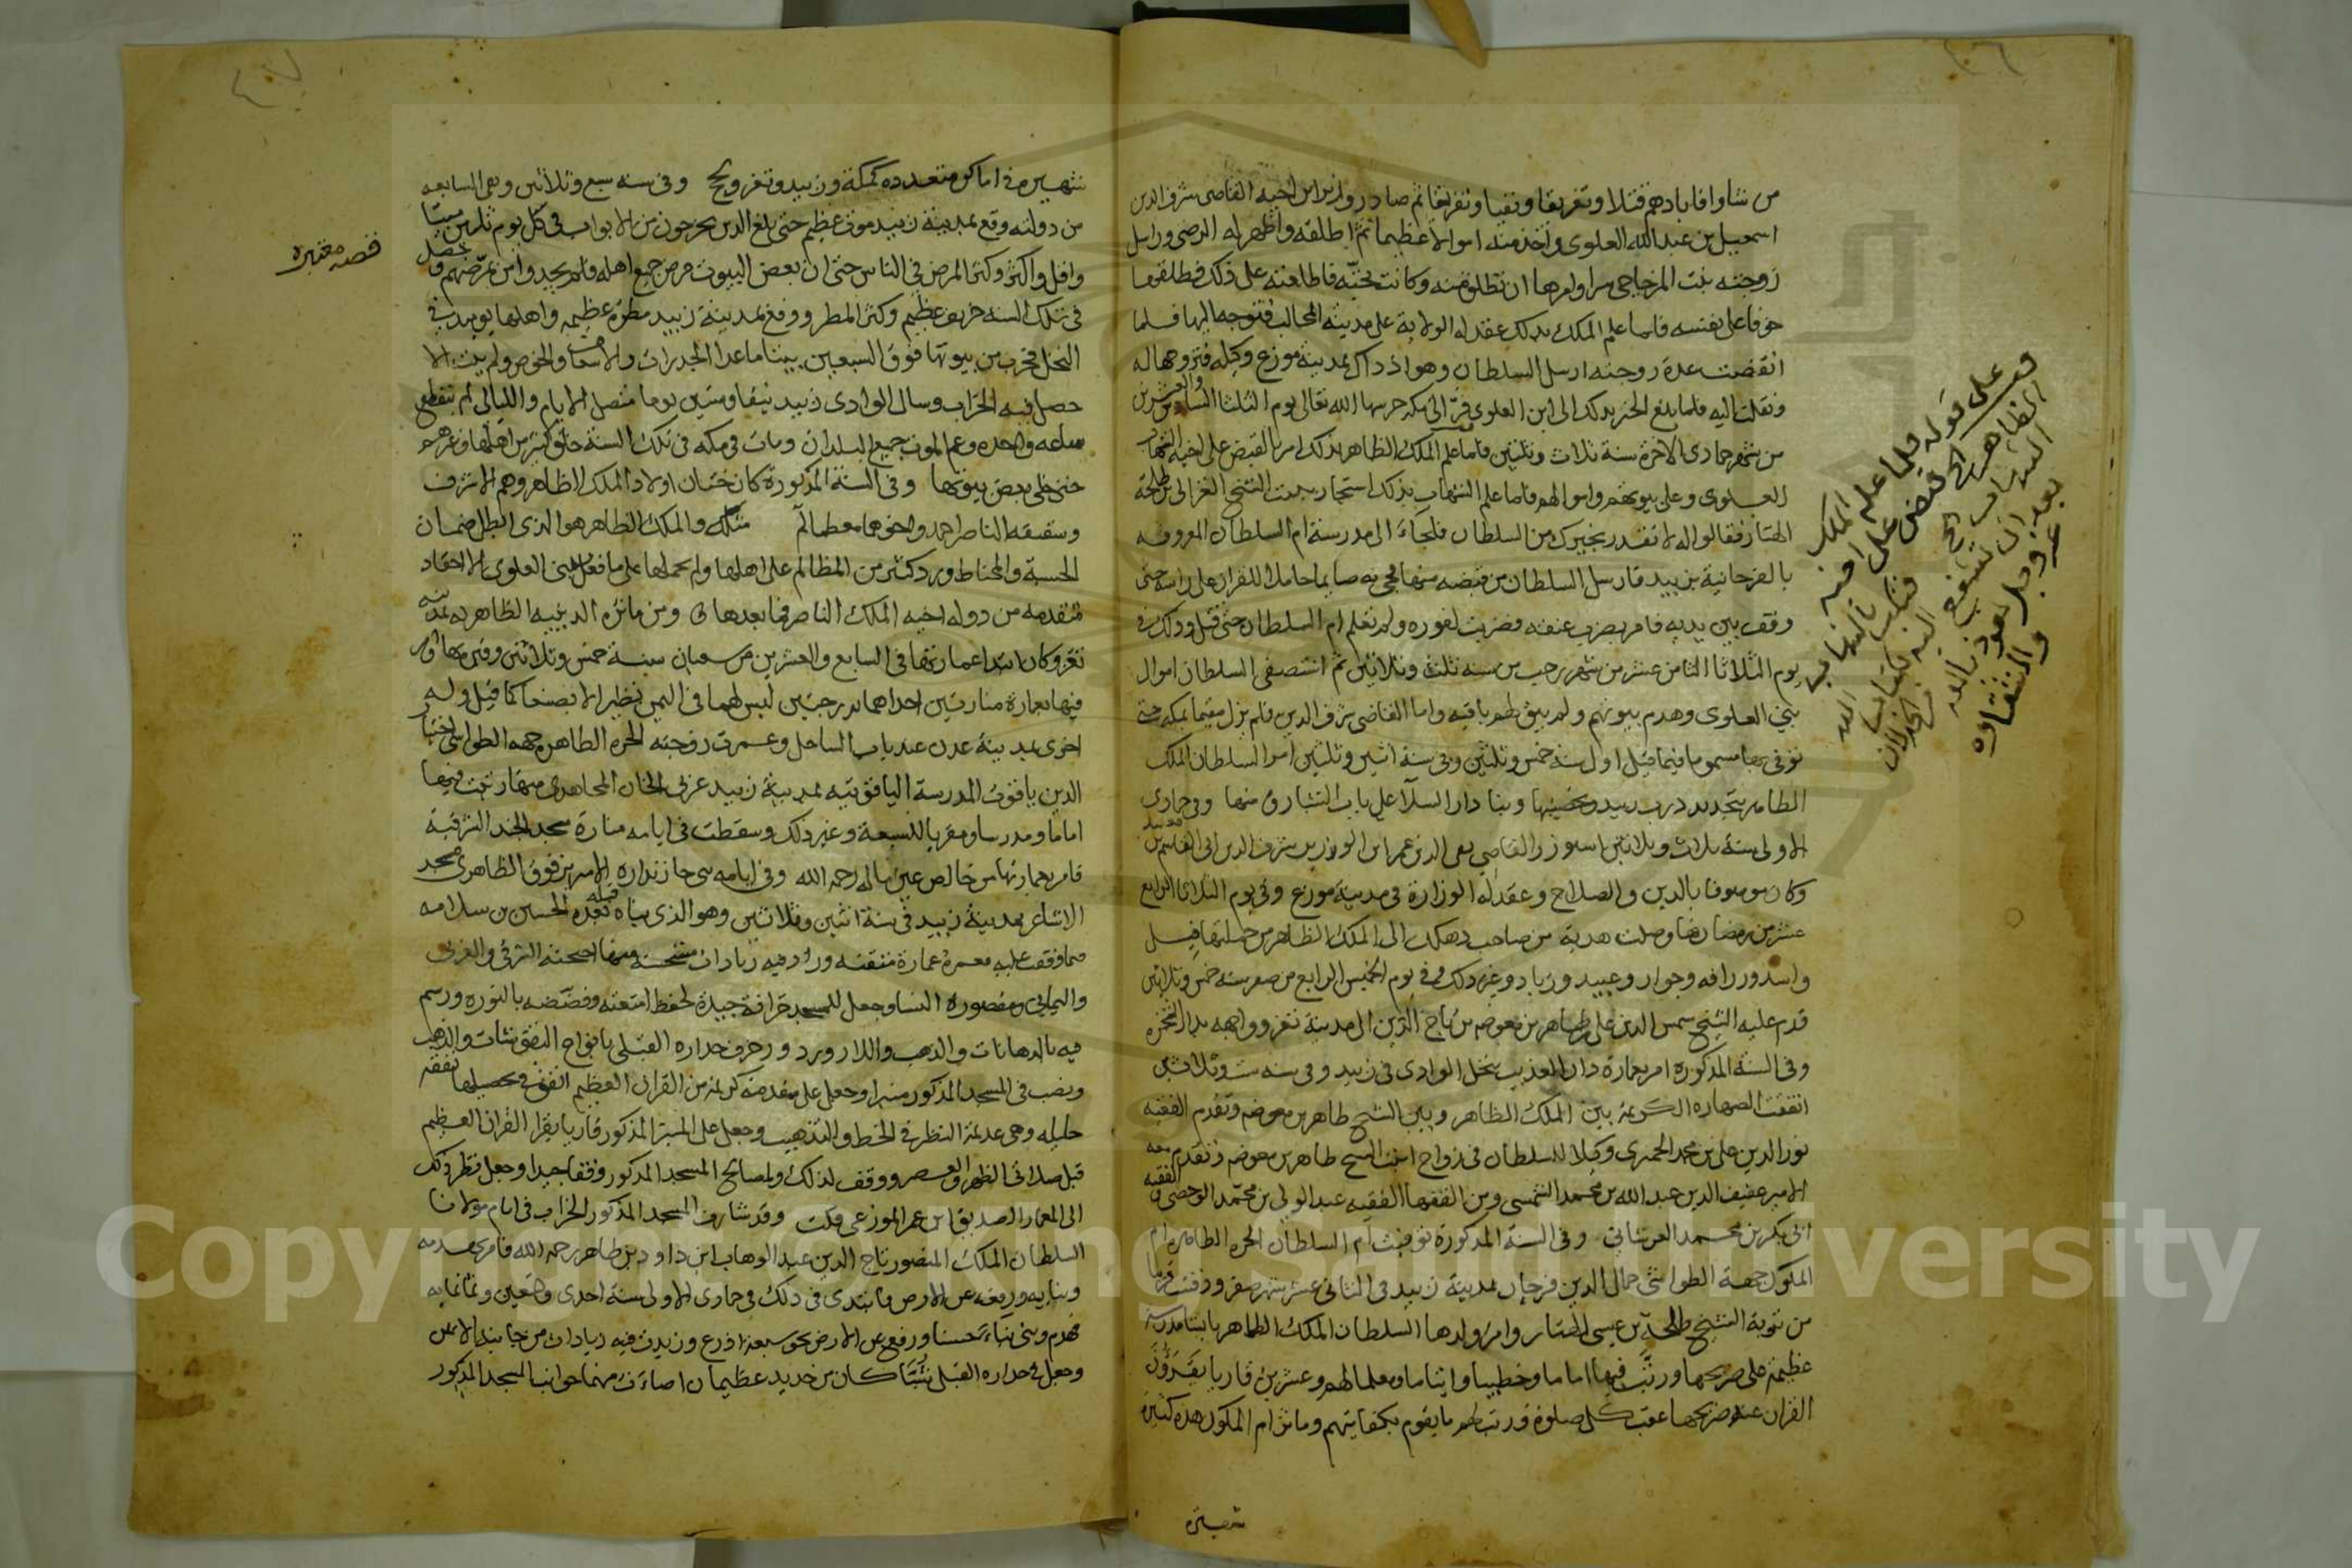 من شاوافابادهم قتلا وتغريقا ونفيا وتفريقا ثم صادر وابن اخيه القاضى شرف الدين
اسمعيل بن عبد الله العلوى واخذ منه اموالا عظيما ثم اطلقه واظهر له الرضى وراسل
زوجته بنت المزجاجى سرا وامرها ان تطلق منه وكانت تحبّه فاطلعته على ذلك فطلقها
خوفا على نفسه فلما علم الملك بذلك عقد له الولاية على مدينة المحالب فتوجه اليها فلما
انقضت عدة زوجته ارسل السلطان وهو اذ ذاك بمدينة موزع وكيله فتزوجها له
ونقلت اليه فلما بلغ الخبر بذلك الى ابن العلوى فرّ الى مكه حرسها الله تعالى يوم الثلثا السادس والعشرين
من شهر جمادى الاخرة سنة ثلاث وثلثين فلما علم الملك الظاهر بذلك امر بالقبض على اخيه الشهاب
العلوى وعلى بيوتهم واموالهم فلما علم الشهاب بذلك استجار ببيت الشيخ الغزالى بن طلحة
الهتار فقالوا له لا نقدر نجيرك من السلطان فلجأ الى مدرسة ام السلطان المعروفه
بالفرحانية بزبيد فارسل السلطان من قبضه منها فجى به صايما حاملا للقران على راسه حتى
وقف بين يديه فامر بضرب عنقه فضربت لفوره ولم تعلم ام السلطان حتى قتل وذلك فى
يوم الثلاثا الثامن عشر من شهر رجب من سنه ثلث وثلاثين ثم استصفى السلطان اموال
بني العلوى وهدم بيوتهم ولم يبق لهم باقيه واما القاضى شرف الدين فلم يزل مقيما بمكه حتى
توفى بها مسموما فيما قيل اول سنه خمس وثلثين وفى سنة اثنين وثلثين امر السلطان الملك
الظاهر بتجديد درب زبيد وتحصينها وبنا دار السلا على باب الشبارق منها وفى جمادى
الاولى سنة ثلاث وثلاثين استوزر القاضى تقى الدين عمر ابن الوزير شرف الدين ابى القاسم بن معيبد
وكان موصوفا بالدين والصلاح وعقد له الوزارة فى مدينة موزع وفى يوم الثلاثا الرابع
عشر من رمضان منها وصلت هدية من صاحب دهلك الى الملك الظاهر من جملتها فيل
واسد وزرافه وجوار وعبيد وزباد وغير ذلك وفى يوم الخميس الرابع من صفر سنه خمس وثلاثين
قدم عليه الشيخ شمس الدين على بن طاهر بن معوضه بن تاج الدين الى مدينة تعز وواجهه بدار النخره
وفى السنة المذكوره امر بعمارة دار العذيب بنخل الوادى فى زبيد وفى سنه ست وثلاثين
اتفقت الصهاره الكريمة بين الملك الظاهر وبين الشيخ طاهر بن معوضه وتقدم الفقيه
نور الدين على بن محمد الحميرى وكيلا للسلطان فى زواج ابنت الشيخ طاهر بن معوضه وتقدم معه
الامير عفيف الدين عبد الله بن محمد الشمسى ومن الفقها الفقيه عبد الولى بن محمد الوحصى والفقيه
ابى بكر بن محمد العرشانى وفى السنة المذكورة توفيت ام السلطان الحره الطاهره ام
الملوك جهة الطواشى جمال الدين فرحان بمدينة زبيد فى الثانى عشر شهر صفر ودفنت قريبا
من تربة الشيخ طلحة بن عيسى الهتار وامر ولدها السلطان الملك الظاهر بابتنا مدرسة
عظيمة على ضريحها ورتب فيها اماما وخطيبا وايتاما ومعلما لهم وعشرين قاريا يقرؤن
القران عند ضريحها عقب كل صلوة ورتب لهم ما يقوم بكفايتهم ومآثر ام الملوك هذه كثيرة
شهيره
قف
على قوله فلما علم الملك
الظاهر الخ قبض على اخيه
الشهاب الخ بالشهاب
بعد ان تشفع اليه بكتاب الله
عز وجل نعوذ بالله من الخذلان
والشقاوه
شهيره فى اماكن متعدده كمكة وزبيد وتعز ولحج وفى سنه سبع وثلاثين وهى السابعه
من دولته وقع بمدينة زبيد موت عظيم حتى بلغ الذين يخرجون من الابواب فى كل يوم ثلثين ميتا
واقل واكثر وكثر المرض فى الناس حتى ان بعض البيوت مرض جميع اهله فلم يجدوا من يمرضهم وحصل
فى تلك السنه خريف عظيم وكثر المطر ووقع بمدينة زبيد مطرة عظيمه واهلها يوميذ فى
النخل فخرب من بيوتها فوق السبعين بيتا ما عدا الجدرات والاسقف والخوص ولم يبت الا
حصل فيه الخراب وسال الوادى زبيد نيفا وستين يوما متصل الايام والليالى لم تنقطع
ساعه واحده وعم الموت جميع البلدان ومات فى مكه فى تلك السنة خلق كثير من اهلها وغيرهم
حتى خلى بعض بيوتها وفى السنة المذكورة كان ختان اولاد الملك الظاهر وهم الاشرف
وشقيقه الناصر احمد واخوهما معهما والملك الظاهر هو الذى ابطل ضمان
الحسبة والخناط ورد كثير من المظالم على اهلها ولم يحملها على ما فعل ببنى العلوى الا احقاد
متقدمه من دوله اخيه الملك الناصر فما بعدها ومن مآثره الدينيه الظاهريه بمدينة
تعز وكان ابتدا عمارتها فى السابع والعشرين من شعبان سنة خمس وثلاثين وفرغ منها
فيها بعمارة منارتين احداهما بدرجتين ليس لهما فى اليمن نظير الا بصنعا كما قيل وله
اخرى بمدينة عدن عند باب الساحل وعمرت زوجته الحره الطاهره جهه الطواشى اختيار
الدين ياقوت المدرسة الياقوتيه بمدينة زبيد غربى الخان المجاهدى منها رتبت فيها
اماما ومدرسا ومقريا للسبعة وغير ذلك وسقطت فى ايامه منارة مسجد الجند الشرقية
فامر بعمارتها من خالص عين ماله رحمه الله وفى ايامه بنى خازنداره الامير برقوق الظاهرى مسجد
الاشاعر بمدينة زبيد فى سنة اثنين وثلاثين وهو الذى بناه قبله الحسين بن سلامه
مما وقفت عليه فعمره عمارة متقنه وزاد فيه زيادات مستحسنه منها اجنحته الشرقى والغربى
واليمانى ومقصورة النسا وجعل للمسجد خزانة جيدة لحفظ امتعته وفضضه بالنوره ورسم
فيه بالدهانات والذهب واللازورد وزخرف جداره القبلى بانواع النقوشات والذهب
ونصب فى المسجد المذكور منبرا وجعل عليه مقدمة كريمة من القران العظيم انفق فى تحصيلها نفقه
جليله وهى عديمة النظير فى الخط والتذهيب وجعل على المنبر المذكور قاريا يقرا القران العظيم
قبل صلاتى الظهر والعصر ووقف لذلك ولمصالح المسجد المذكور وقفا جيدا وجعل نظر ذلك
الى المعمار الصديق ابن عمر الموزعى قلت وقد شارف المسجد المذكور الخراب فى ايام مولانا
السلطان الملك المنصور تاج الدين عبد الوهاب ابن داود بن طاهر رحمه الله فامر بهدمه
وبنايه ورفعه عن الارض فابتدى فى ذلك فى جمادى الاولى سنة احدى وتسعين وثمانمايه
فهدم وبنى بناء حسنا ورفع عن الارض نحو سبعة اذرع وزيدت فيه زيادات من جانبه الايمن
وجعل فى جداره القبلى شباكان من حديد عظيمان اضاءت منهما جوانب المسجد المذكور
قصه معتبره
٤٦
٤٧
Copyright © King Saud University